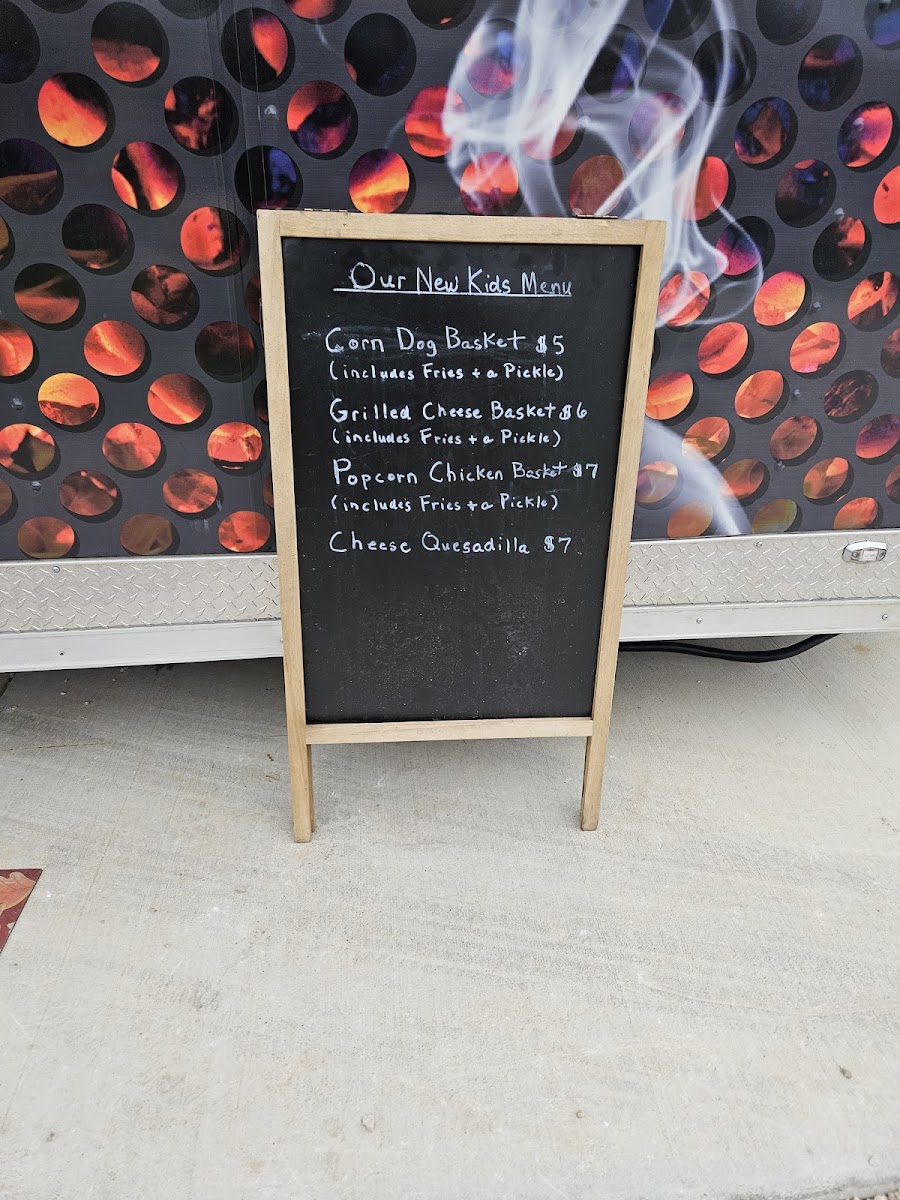 Our New Kids Menu
Corn Dog Basket $5
(includes Fries + a Pickle)
Grilled Cheese Basket $6
(includes Fries + a Pickle)
Popcorn Chicken Basket $7
(includes Fries + a Pickle)
Cheese Quesadilla $7